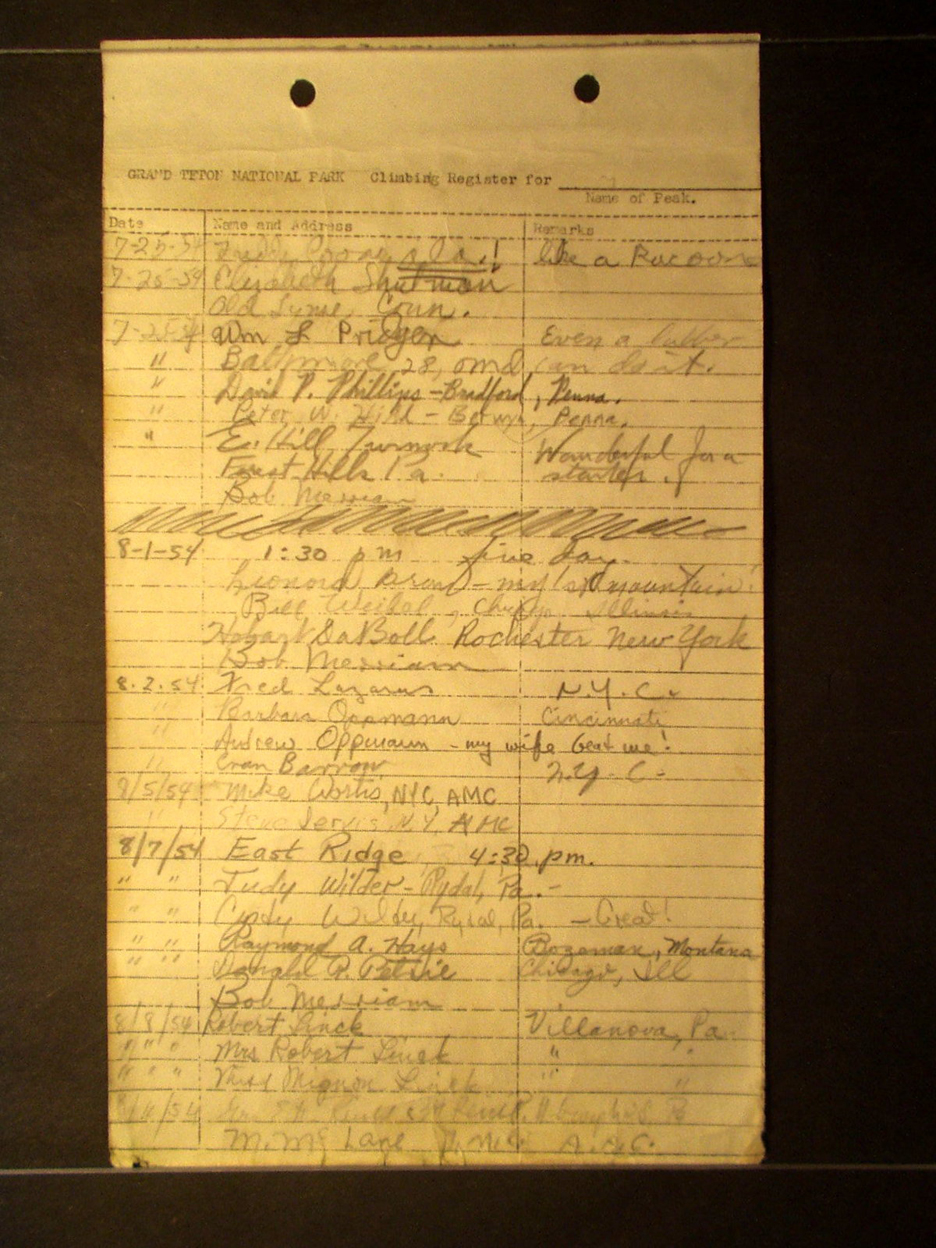 GRAND TETON NATIONAL PARK Climbing Register for
Name of Peak.
Date Name and Address Remarks
7-25-54 like a Racoon
7-25-54 Elizabeth Shutman
Old Lyme, Conn.
7-25-54 Wm L Pridgen Even a lubber
" Baltimore 28, Md. can do it.
" David P. Phillips - Bradford, Penna.
" Peter W. Hill - Berwyn, Penna.
" E. Hill Wonderful for a
Forest Hills Pa. starter.
Bob Merriam
8-1-54 1:30 pm fine day.
Leonard - my 1st mountain!
Bill Weibel, Chicago Illinois
Hobart LaBoll Rochester New York
Bob Merriam
8.2.54 Fred Lazarus N.Y.C.
" Barbara Oppmann Cincinnati
" Andrew Oppmann - my wife beat me!
" Eran Barron N.Y.C.
8/5/54 Mike NYC, AMC
" Steve N.Y. AMC
8/7/54 East Ridge 4:30 pm.
" " Judy Wilder - Rydal, Pa. -
" " Cindy Wilder, Rydal, Pa. - Great!
" " Raymond A. Hays Bozeman, Montana
" " Donald R. Petrie Chicago, Ill
Bob Merriam
8/8/54 Robert Linck Villanova, Pa.
" " " Mrs Robert Linck " "
" " " Miss Mignon Linck " "
8/11/54
M. Mc Lane